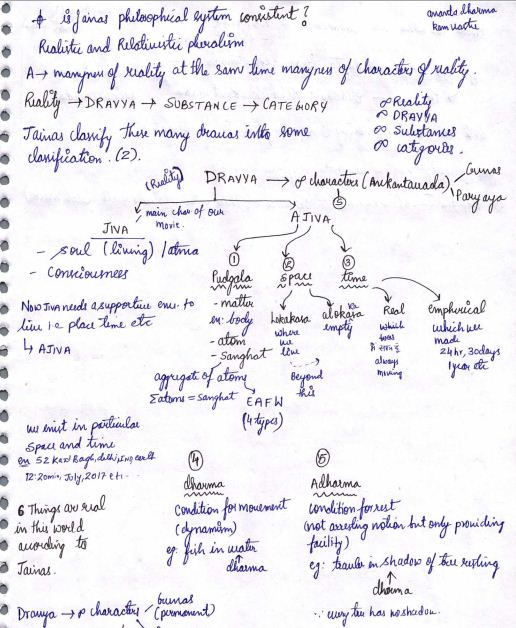 is Jainas philosophical system consistent?
ananda dharma
Realistic and Relativistic pluralism
A → manyness of reality at the same time manyness of characters of reality.
Reality → DRAVYA → SUBSTANCE → CATEGORY
∞ Reality
∞ DRAVYA
∞ Substances
∞ categories.
Jainas classify these many dravas into some
classification. (2).
(Reality) DRAVYA → ∞ characters (Anekantavada)
Gunas
Paryaya
⑤
main char of our
movie.
JIVA
AJIVA
- soul (living) / atma
- Consciousness
① ② ③
Pudgala space time
- matter
en: body
- atom
- Sanghat
lokakasa
where
we
live
alokasa
empty
Beyond
this
Real
which
always
moving
emphirical
which we
made
24hr, 30days
1year etc
Now JIVA needs a supportive env. to
live i.e place time etc
↳ AJIVA
aggregate of atoms
Σatoms = sanghat
EAFW
(4 types)
we exist in particular
space and time
en 52 Karol Bagh, delhi, IND, earth
12:20min, July, 2017 etc.
④
dharma
condition for movement
(dynamism)
eg: fish in water
dharma
⑤
Adharma
condition for rest
(not arresting motion but only providing
facility)
eg: traveller in shadow of tree resting
dharma
∵ every tree has no shadow.
6 Things are real
in this world
according to
Jainas.
Dravya → ∞ characters
Gunas
(permanent)